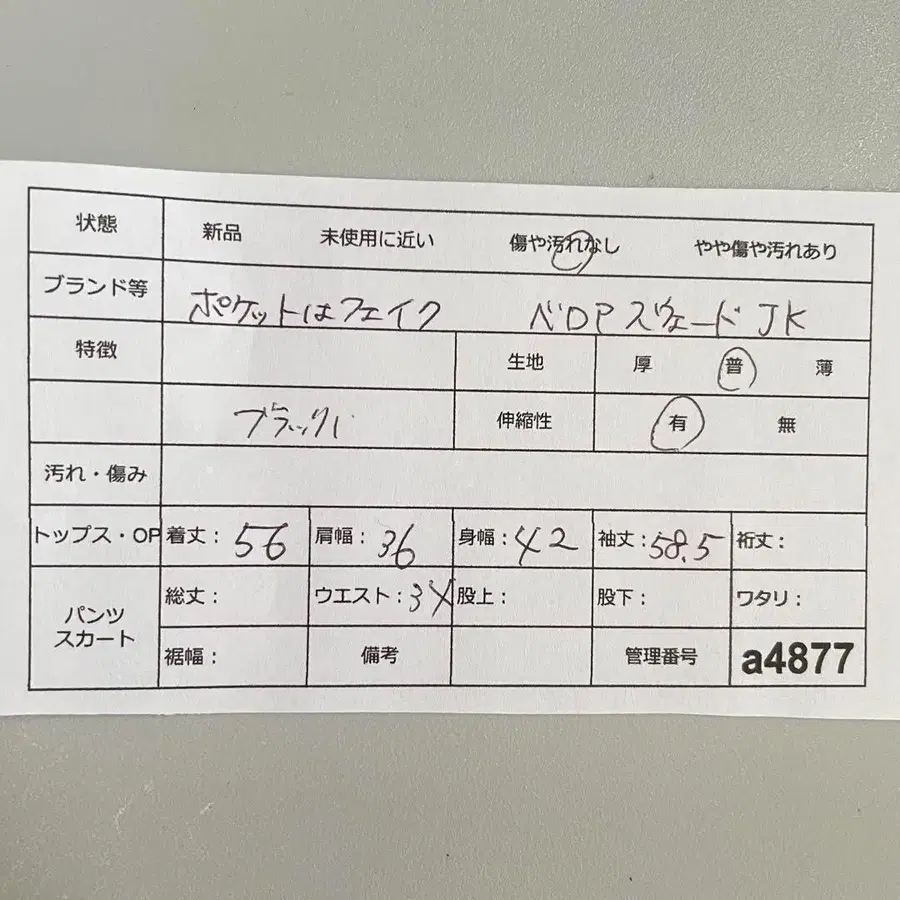 状態 新品 未使用に近い 傷や汚れなし やや傷や汚れあり
ブランド等 ポケットはフェイク ベロア スウェード JK
特徴 生地 厚 普 薄
ブラック 伸縮性 有 無
汚れ・傷み
トップス・OP 着丈: 56 肩幅: 36 身幅: 42 袖丈: 58.5 裄丈:
パンツ スカート 総丈: ウエスト: 股上: 股下: ワタリ:
裾幅: 備考 管理番号 a4877